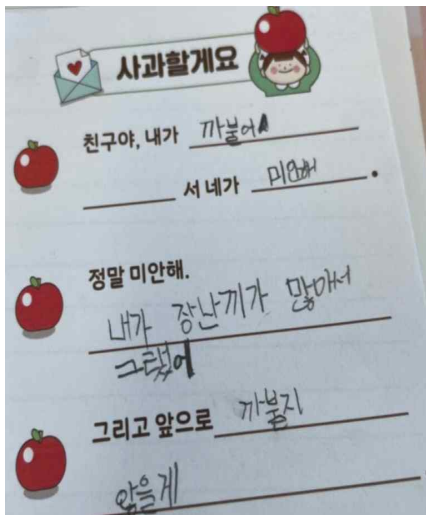 사과할게요
친구야, 내가 까불어
서 네가 미안해.
정말 미안해.
내가 장난끼가 많아서
그랬어
그리고 앞으로 까불지
않을게